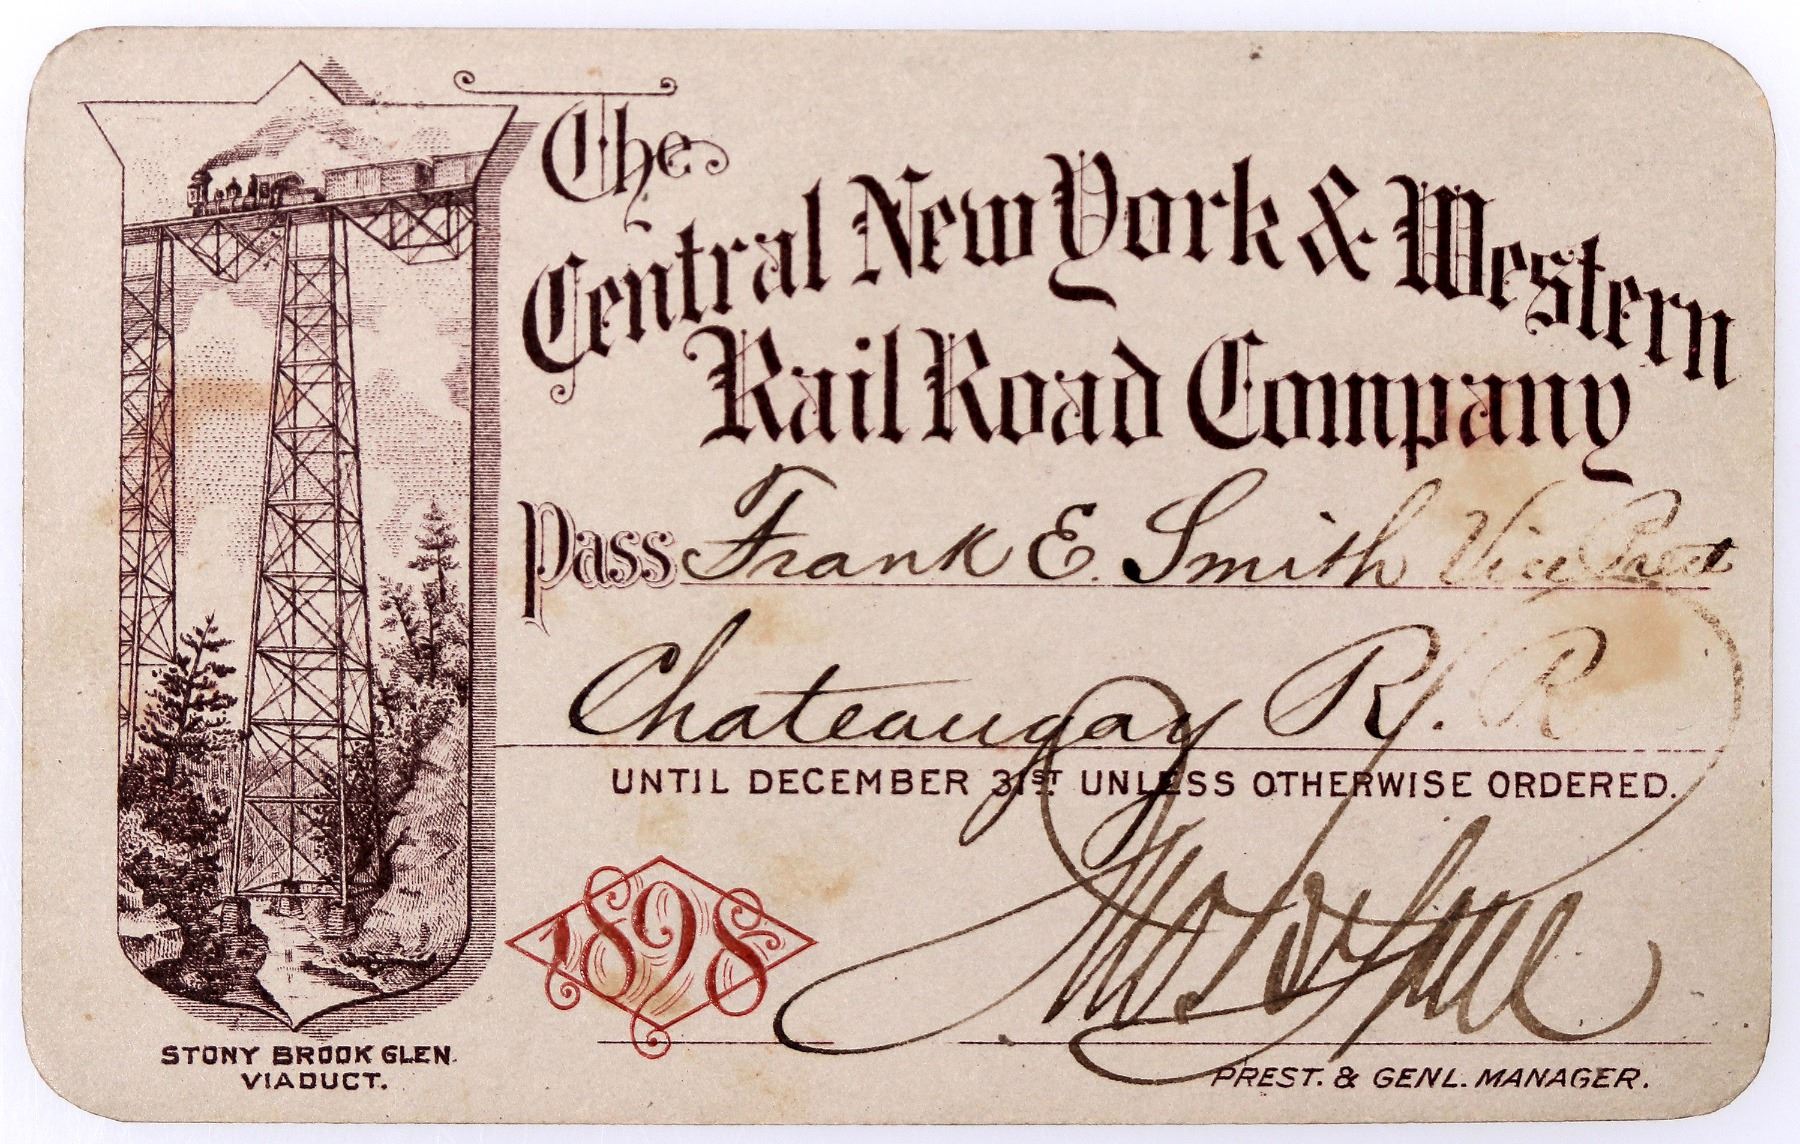 The
Central New York & Western
Rail Road Company
Pass Frank E. Smith Vice Prest
Chateaugay R. R
UNTIL DECEMBER 31ST UNLESS OTHERWISE ORDERED.
1898
PREST. & GENL. MANAGER.
STONY BROOK GLEN
VIADUCT.